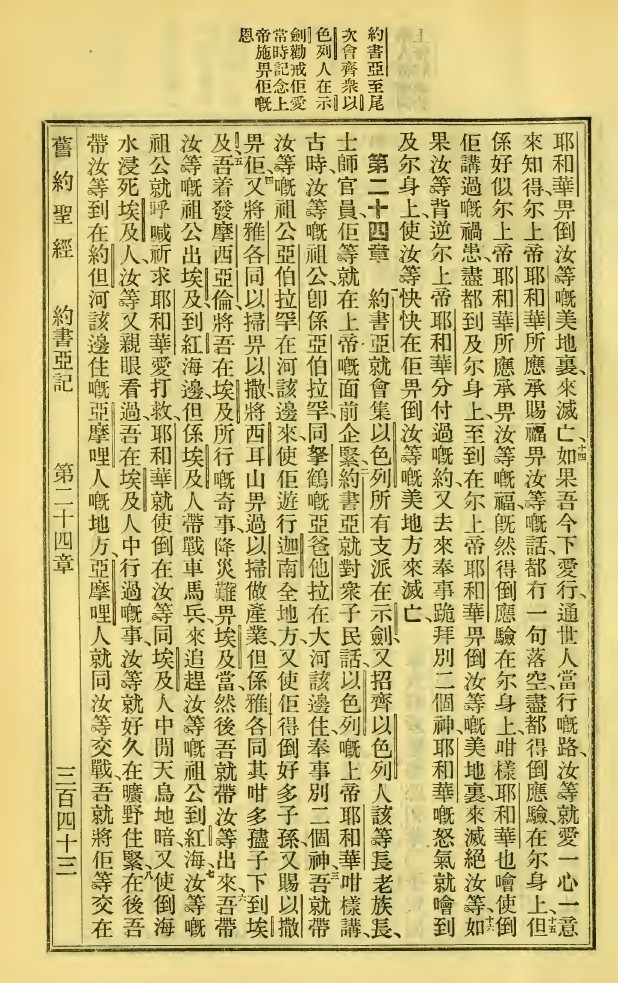 約書亞至尾
次會齊衆以
色列人在示
劍勸戒佢愛
當時記念上
帝施畀佢嘅
恩
耶和華畀倒汝等嘅美地裏、來滅亡、十四如果吾今下愛行、通世人當行嘅路、汝等就愛一心一意
來知得尔上帝耶和華所應承賜福畀汝等嘅話都冇一句落空、盡都得倒應驗、在尔身上、十五但
係好似尔上帝耶和華所應承畀汝等嘅福、旣然得倒應驗在尔身上、咁樣耶和華也噲使倒
佢講過嘅禍患、盡都到及尔身上、至到在尔上帝耶和華畀倒汝等嘅美地裏、來滅絕汝等、十六如
果汝等背逆尔上帝耶和華分付過嘅約、又去來奉事跪拜別二個神、耶和華嘅怒氣就噲到
及尔身上、使汝等快快在佢畀倒汝等嘅美地方來滅亡、
第二十四章　約書亞就會集以色列所有支派在示劍、又招齊以色列人該等長老族長、
士師官員、佢等就在上帝嘅面前企緊、約書亞就對衆子民話、以色列嘅上帝耶和華咁樣講、
古時、汝等嘅祖公、卽係亞伯拉罕、同拏鶴嘅亞爸他拉、在大河該邊住、奉事別二個神、三吾就帶
汝等嘅祖公亞伯拉罕、在河該邊來、使佢遊行迦南全地方、又使佢得倒好多子孫、又賜以撒
畀佢、四又將雅各同以掃畀以撒、將西耳山畀過以掃做產業、但係雅各同其咁多孻子下到埃
及、五吾着發摩西亞倫、將吾在埃及所行嘅奇事、降災難畀埃及、當然後吾就帶汝等出來、六吾帶
汝等嘅祖公出埃及、到紅海邊、但係埃及人帶戰車馬兵、來追趕汝等嘅祖公到紅海、七汝等嘅
祖公就呼喊祈求耶和華愛打救、耶和華就使倒在汝等同埃及人中間、天烏地暗、又使倒海
水浸死埃及人、汝等又親眼看過、吾在埃及人中行過嘅事、汝等就好久在曠野住緊、八在後吾
帶汝等到在約但河該邊住嘅亞摩哩人嘅地方、亞摩哩人就同汝等交戰、吾就將佢等交在
舊約聖經　約書亞記　第二十四章　三百四十三